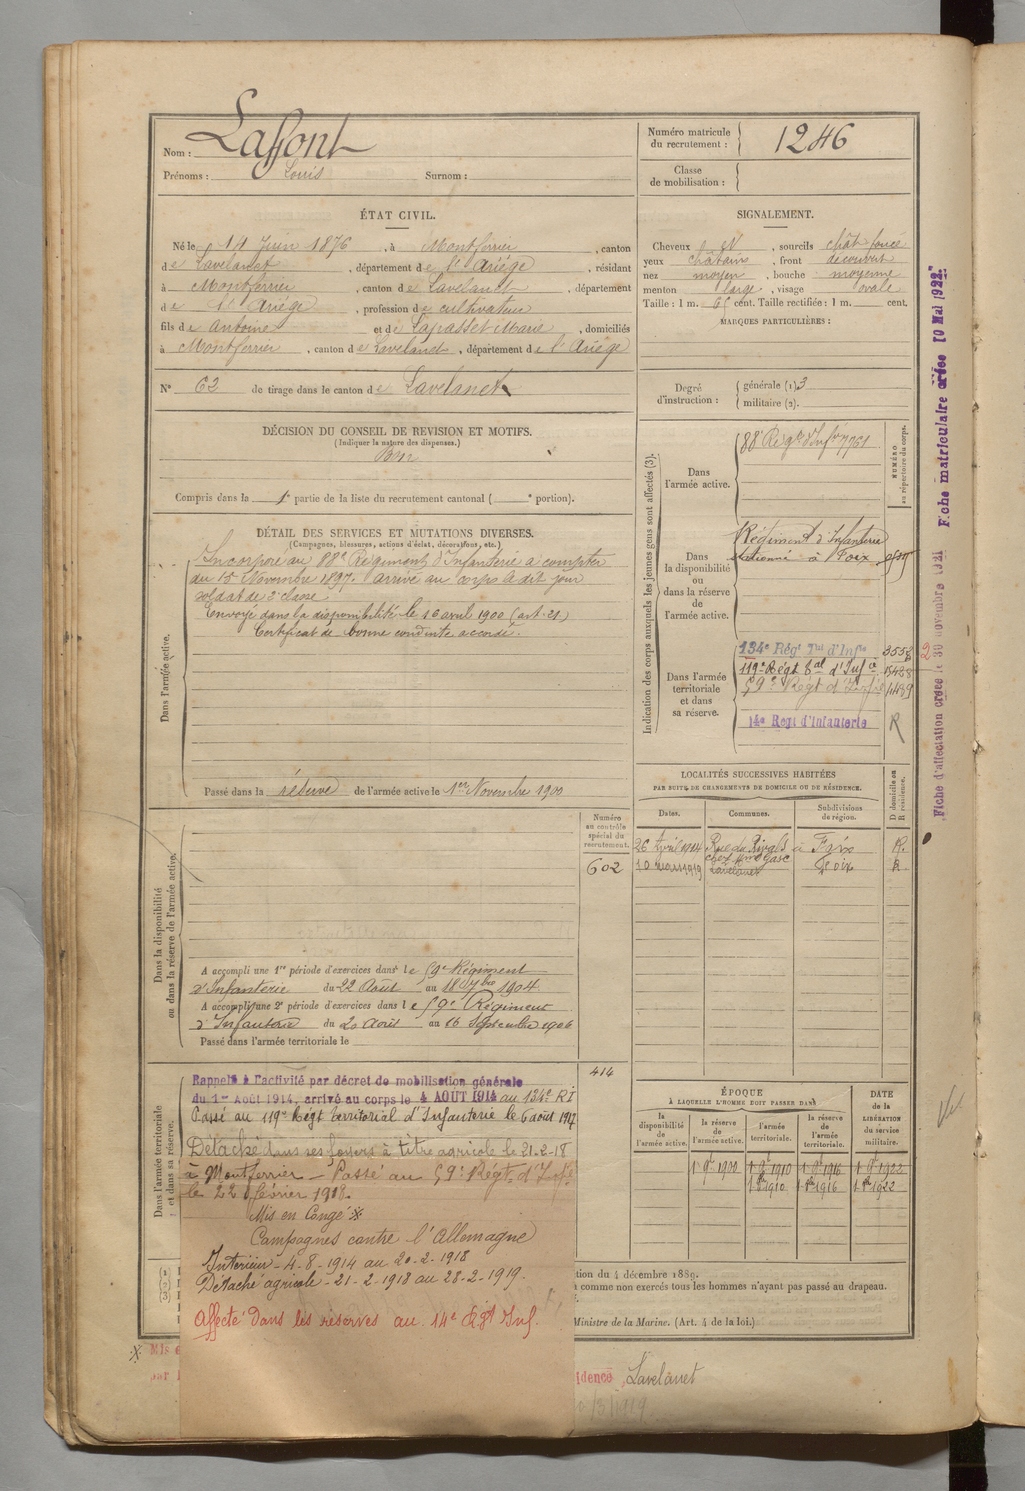 Nom : Laffont
Prénoms : Louis Surnom :
Numéro matricule du recrutement : 1246
Classe de mobilisation :
ÉTAT CIVIL.
Né le 14 Juin 1876, à Montferrier, canton
de Lavelanet, département de l'Ariège, résidant
à Montferrier, canton de Lavelanet, département
de l'Ariège, profession de cultivateur
fils de Antoine et de Lapasset Marie, domiciliés
à Montferrier, canton de Lavelanet, département de l'Ariège
N° 62 de tirage dans le canton de Lavelanet
SIGNALEMENT.
Cheveux N, sourcils chât foncé
yeux châtains, front découvert
nez moyen, bouche moyenne
menton large, visage ovale
Taille : 1 m. 65 cent. Taille rectifiée : 1 m. cent.
MARQUES PARTICULIÈRES :
Degré d'instruction : générale (1) 3
militaire (2).
DÉCISION DU CONSEIL DE REVISION ET MOTIFS.
(Indiquer la nature des dispenses.)
Bon
Compris dans la 1e partie de la liste du recrutement cantonal ( e portion).
DÉTAIL DES SERVICES ET MUTATIONS DIVERSES.
(Campagnes, blessures, actions d'éclat, décorations, etc.)
Dans l'armée active.
Incorporé au 88e Régiment d'Infanterie à compter
du 15 Novembre 1897. arrivé au corps le dit jour
soldat de 2e classe.
Envoyé dans la disponibilité le 16 avril 1900 (art. 21)
Certificat de bonne conduite accordé.
Passé dans la réserve de l'armée active le 1er Novembre 1900
Indication des corps auxquels les jeunes gens sont affectés (3).
NUMÉRO au répertoire du corps.
Dans l'armée active.
88e Régt d'Infie 7751
Dans la disponibilité ou dans la réserve de l'armée active.
Régiment d'Infanterie
stationné à Foix
Dans l'armée territoriale et dans sa réserve.
134e Régt Tal d'Infie
119e Régt Tal d'Infie
59e Régt d'Infie
14e Regt d'Infanterie R
LOCALITÉS SUCCESSIVES HABITÉES
PAR SUITE DE CHANGEMENTS DE DOMICILE OU DE RÉSIDENCE.
D domicile ou R résidence.
Dates. Communes. Subdivisions de région.
26 Avril 1914 Rue du Rival à Foix R.
chez Mme Gasc
10 mars 1919 Lavelanet Foix R
Numéro au contrôle spécial du recrutement.
602
Dans la disponibilité ou dans la réserve de l'armée active.
A accompli une 1re période d'exercices dans le 59e Régiment
d'Infanterie du 22 Août au 18 7bre 1904
A accompli une 2e période d'exercices dans le 59e Régiment
d'Infanterie du 20 Août au 16 Septembre 1906
Passé dans l'armée territoriale le
414
Dans l'armée territoriale et dans sa réserve.
Rappelé à l'activité par décret de mobilisation générale
du 1er Août 1914, arrivé au corps le 4 AOUT 1914 au 134e RI
Passé au 119e Régt Territorial d'Infanterie le 6 août 1917
Détaché dans ses foyers à titre agricole le 21-2-18
à Montferrier - Passé au 59e Régt d'Infie
le 22 février 1918.
Mis en Congé ※
Campagnes contre l'Allemagne
Intérieur - 4-8-1914 au 20-2-1918
Détaché agricole - 21-2-1918 au 28-2-1919.
Affecté dans les réserves au 14e Rgt Inf.
ÉPOQUE
À LAQUELLE L'HOMME DOIT PASSER DANS
DATE de la LIBÉRATION du service militaire.
la disponibilité de l'armée active. la réserve de l'armée active. l'armée territoriale. la réserve de l'armée territoriale.
1 9bre 1900 1 8bre 1910 1 8bre 1916 1 8bre 1922
1 8bre 1910 1 8bre 1916 1 8bre 1922
(1)
(2)
(3)
tion du 4 décembre 1889.
à comme non exercés tous les hommes n'ayant pas passé au drapeau.
Ministre de la Marine. (Art. 4 de la loi.)
※ Mis e
par
idence Lavelanet
Fiche d'affectation créée le 30 novembre 1921
Fiche matriculaire créée 10 Mai 1922